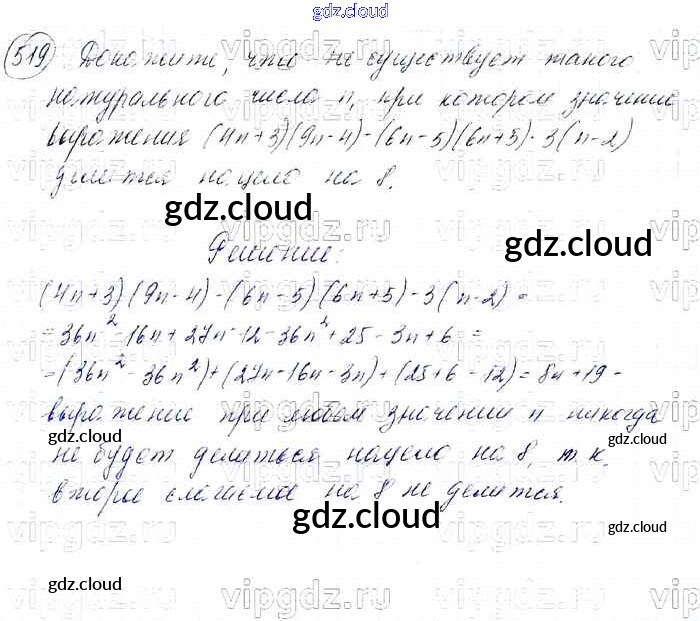 gdz.cloud
519 Докажите, что не существует такого
натурального числа n, при котором значение
выражения (4n+3)(9n-4)-(6n-5)(6n+5)-3(n-2)
делится нацело на 8.
gdz.cloud
Решение:
gdz.cloud
(4n+3)(9n-4)-(6n-5)(6n+5)-3(n-2)=
=36n²-16n+27n-12-36n²+25-3n+6=
=(36n²-36n²)+(27n-16n-3n)+(25+6-12)=8n+19-
выражение при любом значении n никогда
gdz.cloud gdz.cloud
не будет делиться нацело на 8, т.к.
второе слагаемое на 8 не делится.
gdz.cloud
gdz.cloud gdz.cloud
vipgdz.ru vipgdz.ru vipgdz.ru